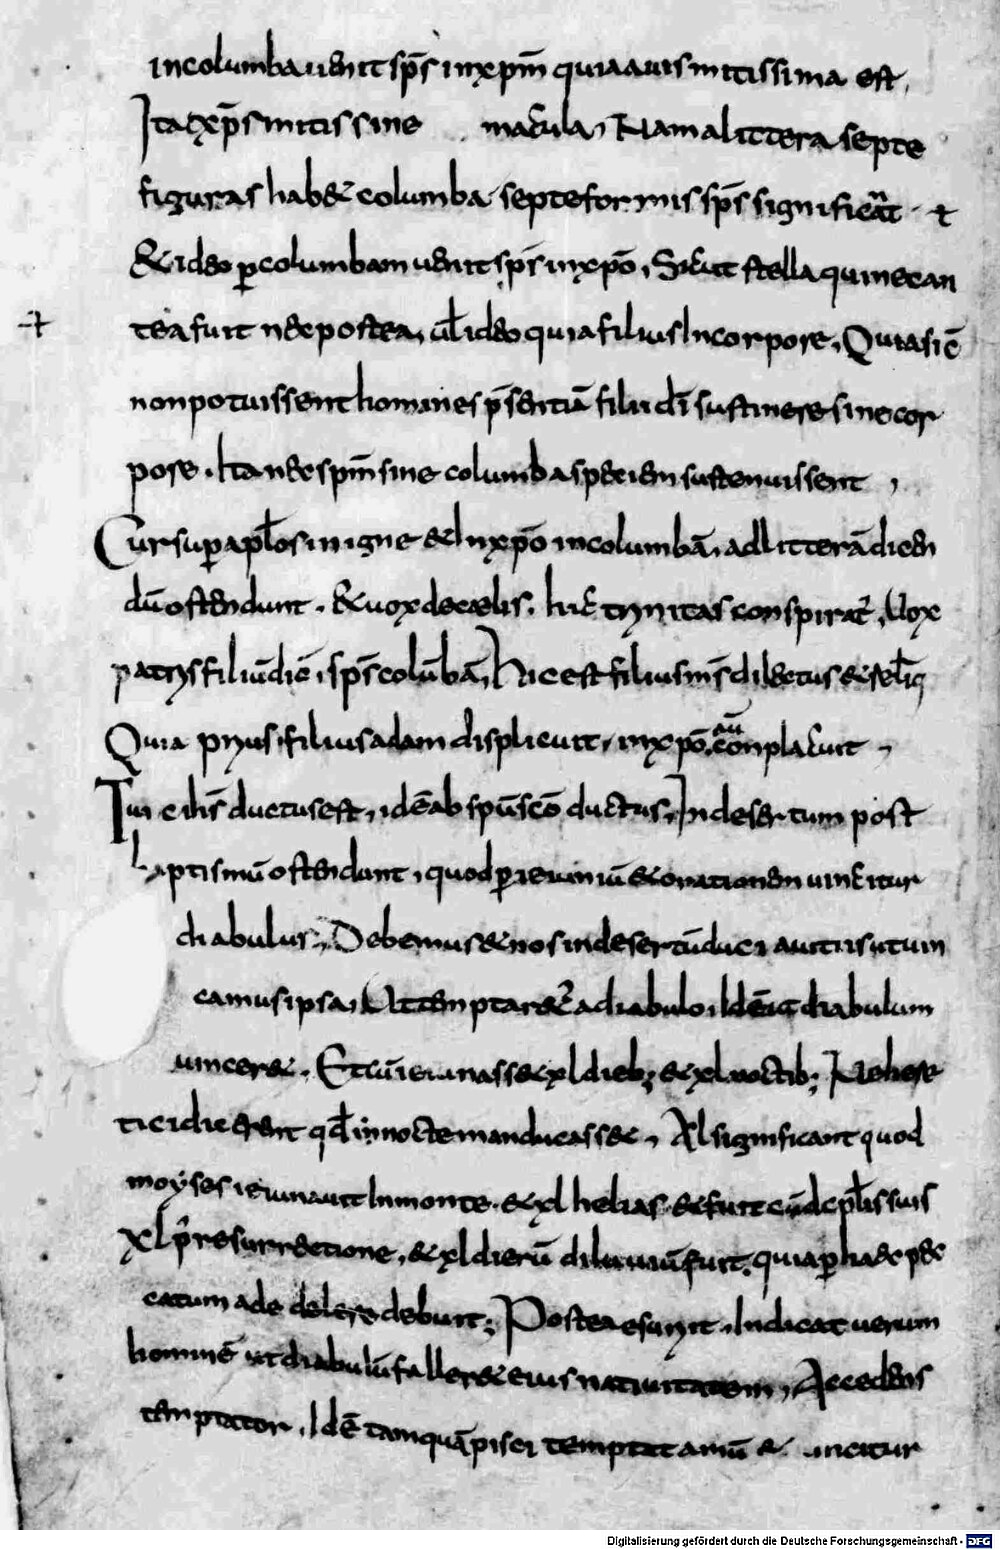 incolumba uenit sp̄s inxpm̄ quia auis mitissima est,
Ita & xp̄s mitis sine macula, Nam alittera septe
figuras hab& columba septeformis sp̄s significat
& ideo p̱ columbam uenit sp̄s inxpō, Sicut stella qui nec an
tea fuit nec postea, ul̄ ideo quia filius Incorpore, Quia siē
non potuissent homines p̄sentiā filii dī sustinere sine cor
pore. Ita nec spm̄ sine columba speciem sustenuissent,
Cur sup̱ apl̄os inigne & Inxpō incolumbā, adlitterā dicen
dū ostendunt. & uox decaelis. hic trinitas conspirat, Uox
patris filiū diē, sp̄s colūbā, Hic est filius ms̄ dilectus & reliq
Quia prius filius adam displicuit, inxpō aū conplacuit,
Tunc ihs̄ ductus est, idē ab spū scō ductus, In desertum post
baptismū ostendunt, quod p̱ ieiuniū & orationem uincitur
diabulus, Debemus & nos indesertū duci
camus ipsa, Ut temptar& a diabulo, Idē ut diabulum
uincer&. Et cū ieiunass& xl dieb; & xl noctib; Ne here
tici dicerent qd̄ innocte manducass&, Xl significant quod
moyses ieiunauit Inmonte. & xl helias. & fuit cū discipl̄is suis
xl p̄ resurrectione, & xl dierū diluuiū fuit, quia p̱ haec pec
catum adae delere debuit; Postea esuriit, Indicat uerum
hominē ut diabulū faller& eius natiuitatem, Accedens
temptator, Idē tamquā pisci temptat amū & uncitur
Digitalisierung gefördert durch die Deutsche Forschungsgemeinschaft - DFG